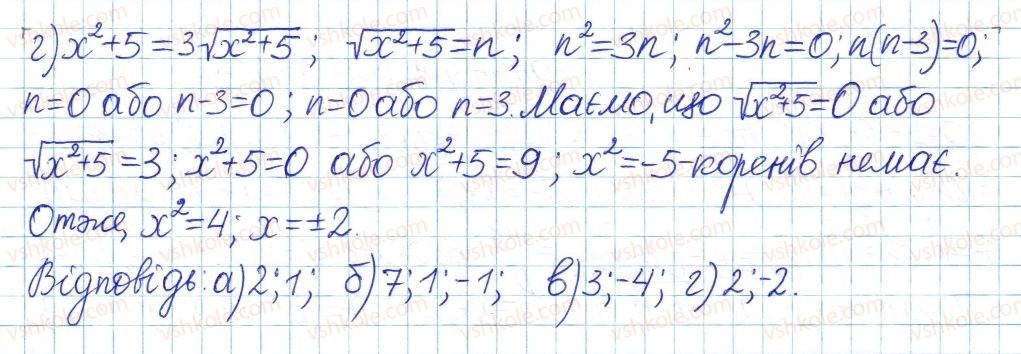 г) x²+5=3√(x²+5); √(x²+5)=n; n²=3n; n²-3n=0; n(n-3)=0;
n=0 або n-3=0; n=0 або n=3. Маємо, що √(x²+5)=0 або
√(x²+5)=3; x²+5=0 або x²+5=9; x²=-5-коренів немає.
Отже, x²=4; x=±2.
Відповідь: а) 2; 1; б) 7; 1; -1; в) 3; -4; г) 2; -2.